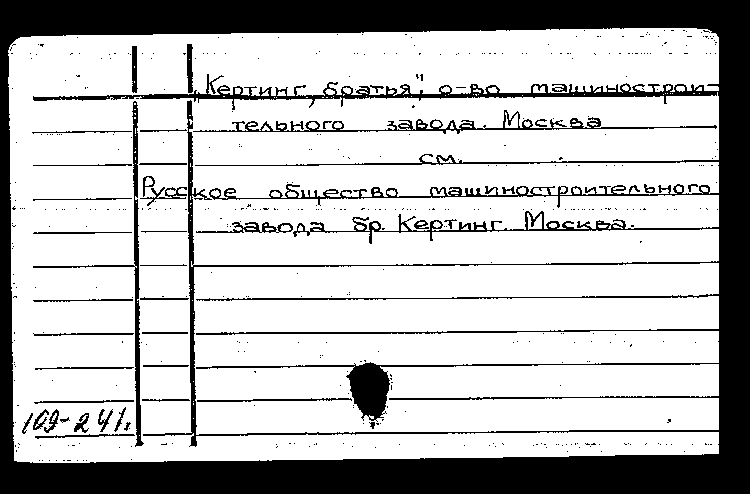 „Кертинг, братья", о-во машинострои-
тельного завода. Москва
см.
Русское общество машиностроительного
завода бр. Кертинг. Москва.
109-241.